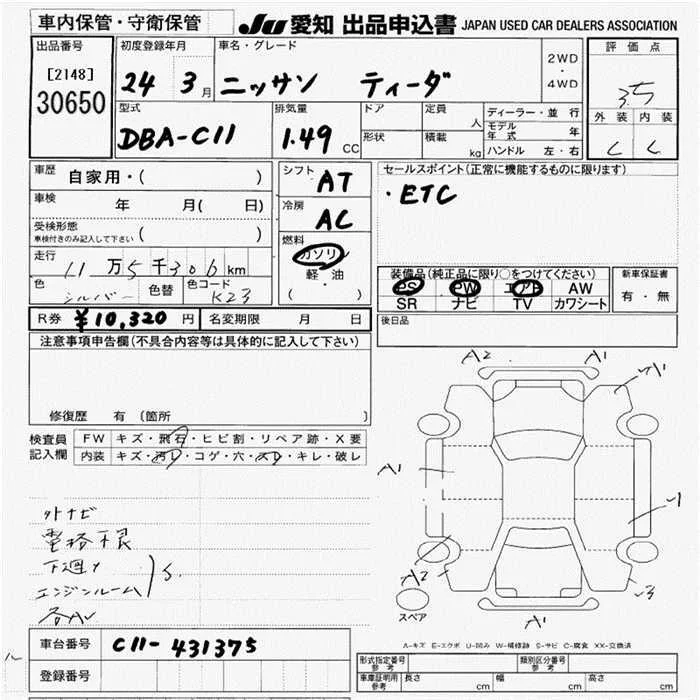 車内保管・守衛保管
JU 愛知 出品申込書 JAPAN USED CAR DEALERS ASSOCIATION
出品番号
[2148]
30650
初度登録年月
24 3月
車名・グレード
ニッサン ティーダ
2WD
・
4WD
評価点
3.5
外装 内装
C C
型式
DBA-C11
排気量
1.49 CC
ドア
形状
定員 人
積載 kg
ディーラー・並行
モデル年式 年
ハンドル 左・右
車歴 自家用・( )
車検 年 月( 日)
受検形態
車検付きのみ記入して下さい ( )
走行 11万5千306km
色 シルバー 色替 色コード K23
シフト AT
冷房 AC
燃料
ガソリン
軽・油
( )
セールスポイント(正常に機能するものに限ります)
・ETC
装備品(純正品に限り○をつけてください)
PS PW エアB AW
SR ナビ TV カワシート
新車保証書
有・無
R券 ¥10,320円 名変期限 月 日
後日品
注意事項申告欄(不具合内容等は具体的に記入して下さい)
修復歴 有 〔箇所 〕
検査員
記入欄
FW キズ・飛石・ヒビ割・リペア跡・X要
内装 キズ・汚レ・コゲ・穴・スレ・キレ・破レ
外ナビ
電格不良
下廻り
エンジンルーム
S.
各AU
A2 A1
A1
A1
A2
A1
スペア
A-キズ E-エクボ U-凹み W-補修跡 S-サビ C-腐食 XX-交換済
車台番号 C11-431375
登録番号
形式指定番号
参考
類別区分番号
参考
車庫証明用
参考
長さ cm 幅 cm 高さ cm